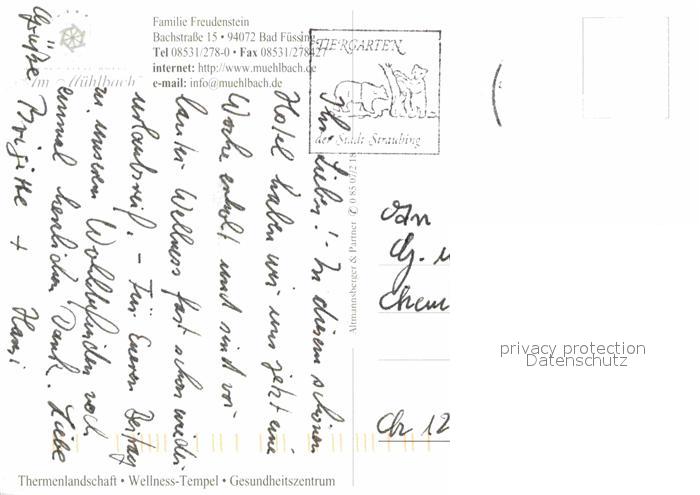 Familie Freudenstein
Bachstraße 15 • 94072 Bad Füssing
Tel 08531/278-0 • Fax 08531/278427
internet: http://www.muehlbach.de
e-mail: info@muehlbach.de
Im Mühlbach
TIERGARTEN
der Stadt Straubing
Ihr Lieben! - In diesem schönen
Hotel haben wir uns jetzt eine
Woche erholt und sind vor
lauter Wellness fast schon wieder
urlaubsreif. - Für Euren Beitrag
zu unserem Wohlbefinden noch
einmal herzlichen Dank. Liebe
Grüße Brigitte + Hansi
Altmannsberger & Partner ✆ 0 85 07/2 18
An
Chem
Ch 12
privacy protection
Datenschutz
Thermenlandschaft • Wellness-Tempel • Gesundheitszentrum